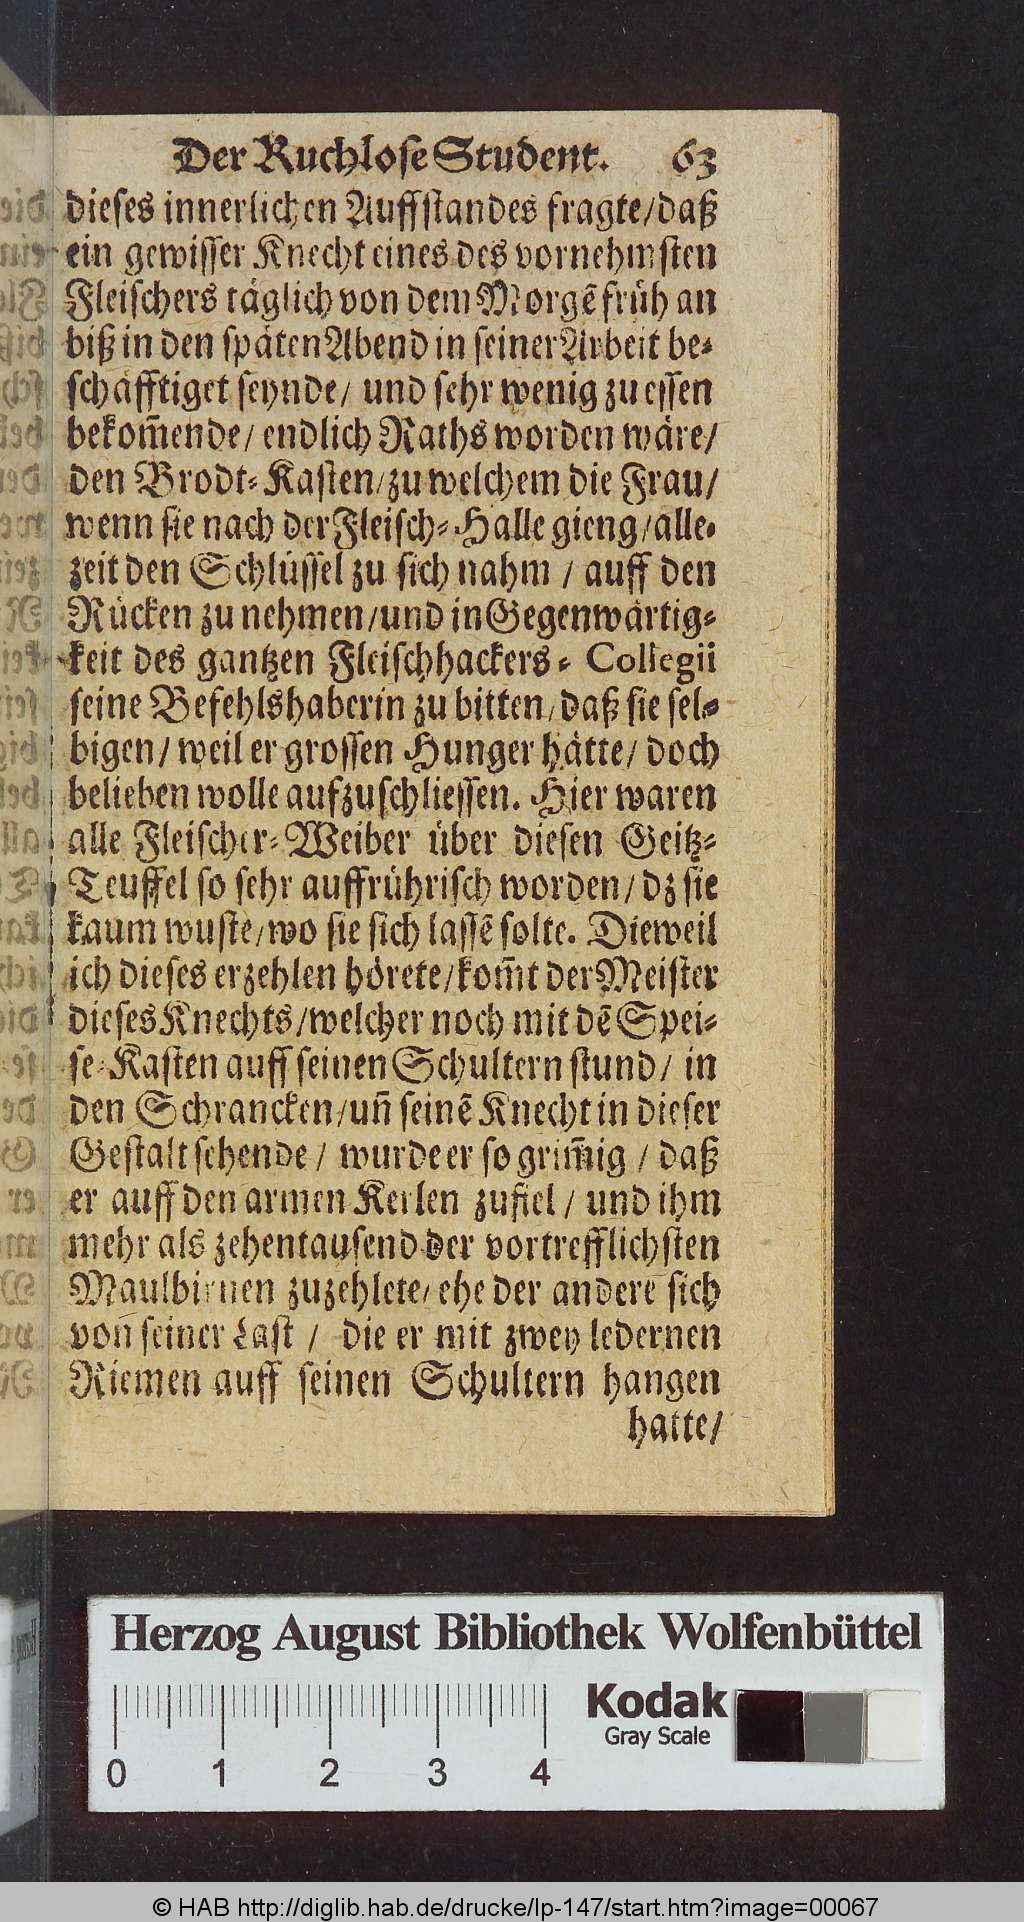 Der Ruchlose Student. 63
dieses innerlichen Auffstandes fragte/daß
ein gewisser Knecht eines des vornehmsten
Fleischers täglich von dem Morgẽ früh an
biß in den späten Abend in seiner Arbeit be-
schäfftiget seynde/ und sehr wenig zu essen
bekom̃ende/ endlich Raths worden wäre/
den Brodt-Kasten/zu welchem die Frau/
wenn sie nach der Fleisch-Halle gieng/alle-
zeit den Schlüssel zu sich nahm / auff den
Rücken zu nehmen/und in Gegenwärtig-
keit des gantzen Fleischhackers-Collegii
seine Befehlshaberin zu bitten/daß sie sel-
bigen/ weil er grossen Hunger hätte/ doch
belieben wolle aufzuschliessen. Hier waren
alle Fleischer-Weiber über diesen Geitz-
Teuffel so sehr auffrührisch worden/ dz sie
kaum wuste/wo sie sich lassẽ solte. Dieweil
ich dieses erzehlen hörete/kom̃t der Meister
dieses Knechts/welcher noch mit dẽ Spei-
se-Kasten auff seinen Schultern stund/ in
den Schrancken/uñ seinẽ Knecht in dieser
Gestalt sehende / wurde er so grim̃ig / daß
er auff den armen Kerlen zufiel / und ihm
mehr als zehentausend der vortrefflichsten
Maulbirnen zuzehlete/ehe der andere sich
von seiner Last / die er mit zwey ledernen
Riemen auff seinen Schultern hangen
hatte/
Herzog August Bibliothek Wolfenbüttel
Kodak
Gray Scale
0 1 2 3 4
© HAB http://diglib.hab.de/drucke/lp-147/start.htm?image=00067